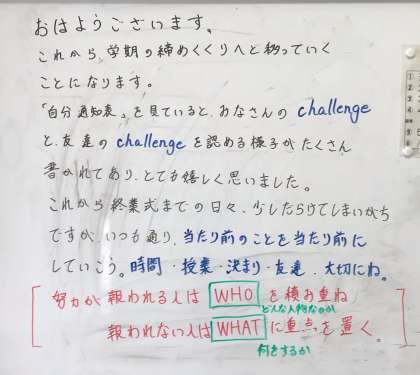 おはようございます。
これから、学期の締めくくりへと移っていく
ことになります。
「自分通知表」を見ていると、みなさんの challenge
と、友達の challenge を認める様子がたくさん
書かれてあり、とても嬉しく思いました。
これから終業式までの日々、少しだらけてしまいがち
ですが、いつも通り、当たり前のことを当たり前に
していこう。時間・授業・決まり・友達、大切にね。
努力が報われる人は WHO を積み重ね
どんな人物なのか
報われない人は WHAT に重点を置く。
何をするか